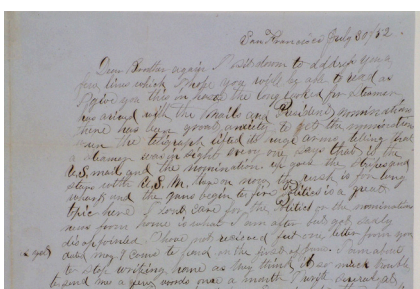 San Francisco July 30/52
Dear Brother again I sit down to address you a
few lines which I hope you will be able to read as
I give you this in haste the long looked for steamer
has arived with the Mails and President nominations
there has been great anxiety to get the nomination
when the telegraph lifted its huge arms telling that
a steamer was in sight every one says that is the
U.S. mail and the nomination up goes the stripes and
stars with U.S.M. upon now the rush is for long
wharf and the guns begin to fire Politics is a great
topic here I dont care for the Politics or the nominations
news from home is what I am after but got sadly
disapointed I have not received but one letter from you
dated may I come to hand on the first of June I am about
to stop writing home as they think it so much trouble
to send me a few words once a month I write